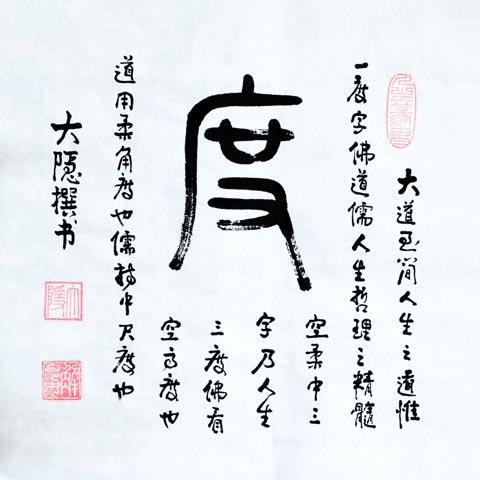 度
大道至简人生之道惟
一度字佛道儒人生哲理之精髓
空柔中三
字乃人生
三度佛有
空高度也
道用柔角度也儒持中尺度也
大隐撰书
大隐